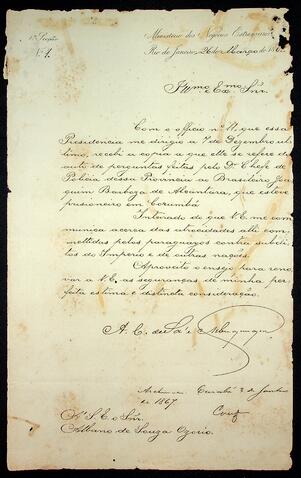 1ª Secção
N. 1.
Ministerio dos Negocios Estrangeiros
Rio de Janeiro, 26 de Março de 186
Illmo. e Exmo. Snr.
Com o officio nº 71, que essa
Presidencia me dirigio a 7 de Dezembro ul-
timo, recebi a copia a que elle se refere do
auto de perguntas feitas pelo Dr. Chefe de
Policia dessa Provincia ao Brasileiro Joa-
quim Barboza de Alcantara, que esteve
prisioneiro em Corumbá.
Inteirado do que V.E. me com-
munica acerca das atrocidades alli com-
mettidas pelos paraguayos contra subdi-
tos do Imperio e de outras nações.
Aproveito o ensejo para reno-
var a V.E. as seguranças de minha per-
feita estima e distincta consideração.
A. C. de Sá e Albuquerque
Cuiabá 2 de
de 1867
A S. E. o Snr.
Albano de Souza Ozorio.